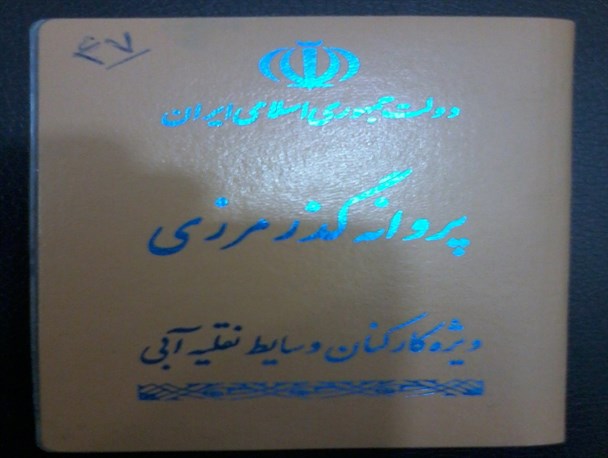 دولت جمهوری اسلامی ایران
پروانه گذر مرزی
ویژه کارکنان وسایط نقلیه آبی